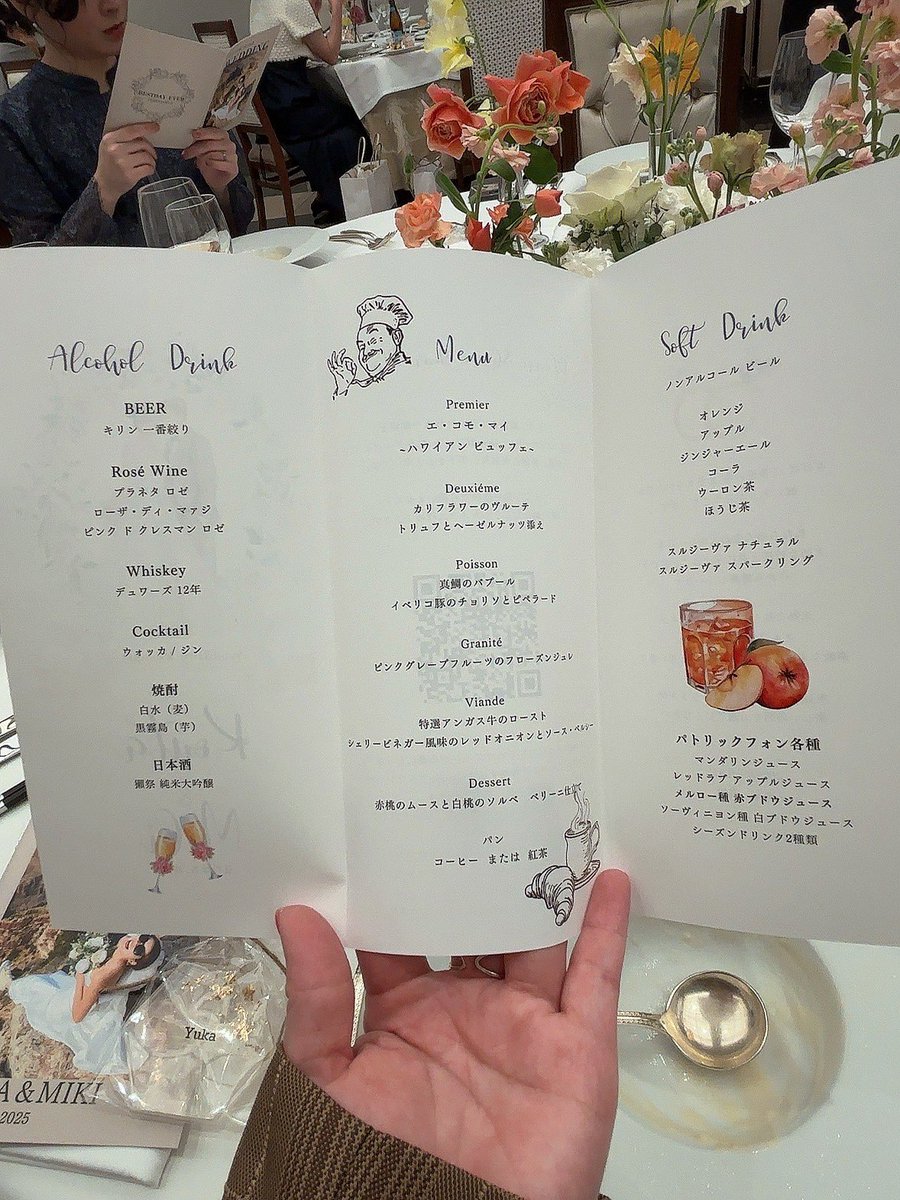 WEDDING
BESTDAY EVER
Alcohol Drink
BEER
キリン 一番絞り
Rosé Wine
プラネタ ロゼ
ローザ・ディ・マァジ
ピンク ド クレスマン ロゼ
Whiskey
デュワーズ 12年
Cocktail
ウォッカ / ジン
焼酎
白水（麦）
黒霧島（芋）
日本酒
獺祭 純米大吟醸
Menu
Premier
エ・コモ・マイ
~ハワイアン ビュッフェ~
Deuxiéme
カリフラワーのヴルーテ
トリュフとヘーゼルナッツ添え
Poisson
真鯛のバプール
イベリコ豚のチョリソとピペラード
Granité
ピンクグレープフルーツのフローズンジュレ
Viande
特選アンガス牛のロースト
シェリービネガー風味のレッドオニオンとソース・ベルシー
Dessert
赤桃のムースと白桃のソルベ ベリーニ仕立て
パン
コーヒー または 紅茶
Soft Drink
ノンアルコール ビール
オレンジ
アップル
ジンジャーエール
コーラ
ウーロン茶
ほうじ茶
スルジーヴァ ナチュラル
スルジーヴァ スパークリング
パトリックフォン各種
マンダリンジュース
レッドラブ アップルジュース
メルロー種 赤ブドウジュース
ソーヴィニヨン種 白ブドウジュース
シーズンドリンク2種類
Yuka
A & MIKI
2025